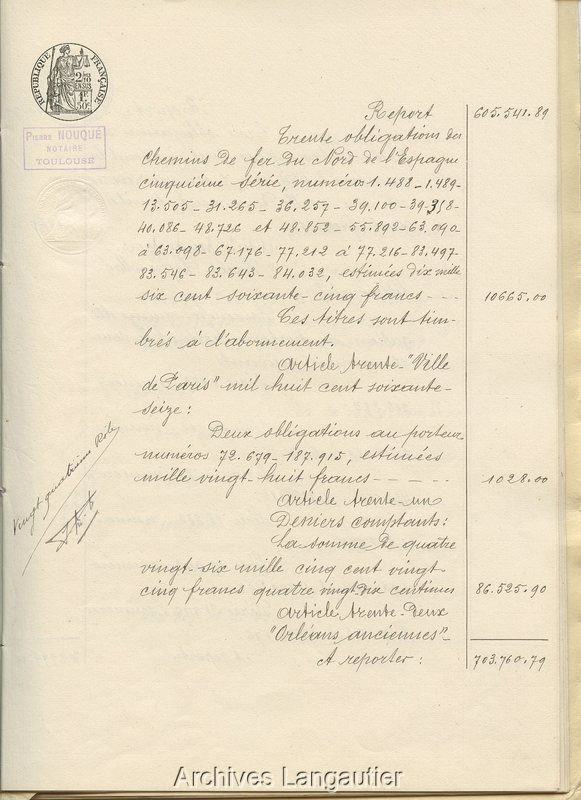 RÉPUBLIQUE FRANÇAISE
2/10 EN SUS
1F 50c
PIERRE NOUQUÉ
NOTAIRE
TOULOUSE
Report 605.541.89
Trente obligations des
Chemins de fer du Nord de l'Espagne
cinquième série, numéros 1.488-1.489-
13.505-31.265-36.257-39.100-39.358-
40.086-48.726 et 48.852-55.892-63.090
à 63.098-67.176-77.212 à 77.216-83.497-
83.546-83.643-84.032, estimées dix mille
six cent soixante-cinq francs - - - 10665.00
Ces titres sont tim-
brés à l'abonnement.
Article trente-"Ville
de Paris" mil huit cent soixante-
seize:
Deux obligations au porteur
numéros 72.679-187.915, estimées
mille vingt-huit francs - - - - - 1028.00
Article trente-un
Deniers comptants:
La somme de quatre
vingt-six mille cinq cent vingt
cinq francs quatre vingt dix centimes 86.525.90
Article trente-Deux
"Orléans anciennes"-
A reporter: 703.760.79
Vingt quatrième Rôle
Archives Langautier